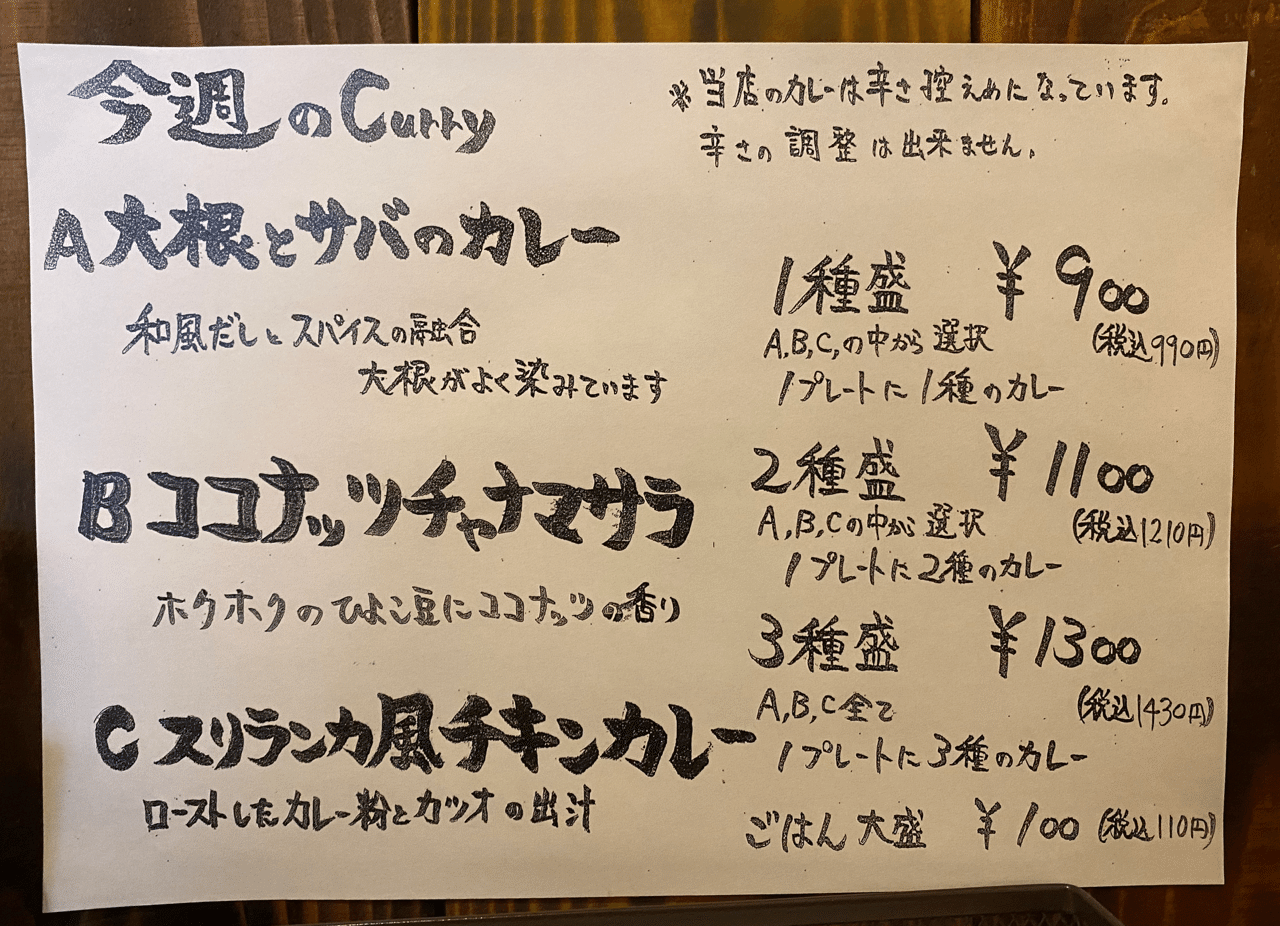 今週のCurry
※当店のカレーは辛さ控えめになっています。
辛さの調整は出来ません。
A 大根とサバのカレー
和風だしとスパイスの融合
大根がよく染みています
B ココナッツチャナマサラ
ホクホクのひよこ豆にココナッツの香り
C スリランカ風チキンカレー
ローストしたカレー粉とカツオの出汁
1種盛 ¥900
A,B,C,の中から選択 (税込990円)
1プレートに1種のカレー
2種盛 ¥1100
A,B,Cの中から選択 (税込1210円)
1プレートに2種のカレー
3種盛 ¥1300
A,B,C全て (税込1430円)
1プレートに3種のカレー
ごはん大盛 ¥100 (税込110円)